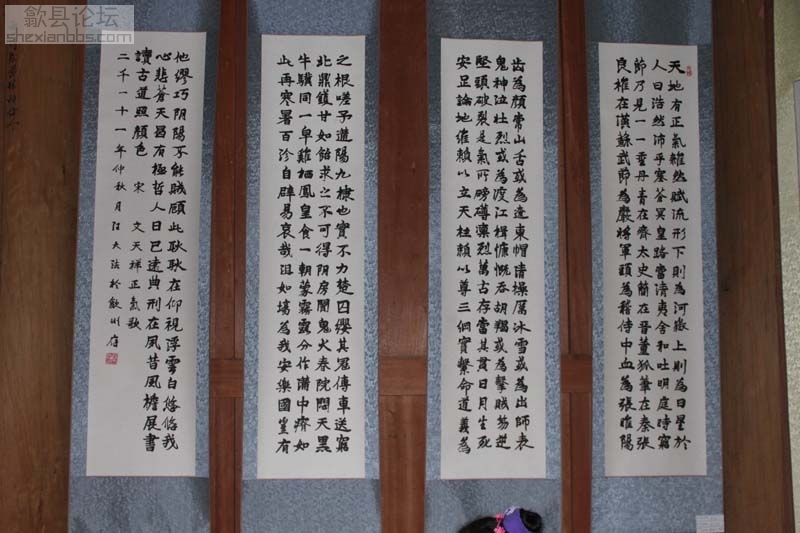 歙县论坛
shexianbbs.com
天地有正氣雜然賦流形下則為河嶽上則為日星於
人曰浩然沛乎塞蒼冥皇路當清夷含和吐明庭時窮
節乃見一一垂丹青在齊太史簡在晉董狐筆在秦張
良椎在漢蘇武節為嚴將軍頭為嵇侍中血為張睢陽
齒為顏常山舌或為遼東帽清操厲冰雪或為出師表
鬼神泣壯烈或為渡江楫慷慨吞胡羯或為擊賊笏逆
豎頭破裂是氣所磅礴凜烈萬古存當其貫日月生死
安足論地維賴以立天柱賴以尊三綱實繫命道義為
之根嗟予遘陽九隸也實不力楚囚纓其冠傳車送窮
北鼎鑊甘如飴求之不可得陰房闃鬼火春院閟天黑
牛驥同一皁雞栖鳳皇食一朝蒙霧露分作溝中瘠如
此再寒暑百沴自辟易哀哉沮如場為我安樂國豈有
他繆巧阴陽不能賊顾此耿耿在仰視浮雲白悠悠我
心悲蒼天曷有極哲人日已遠典刑在夙昔風檐展書
讀古道照顏色 宋 文天祥正氣歌
二千一十一年仲秋月汪大